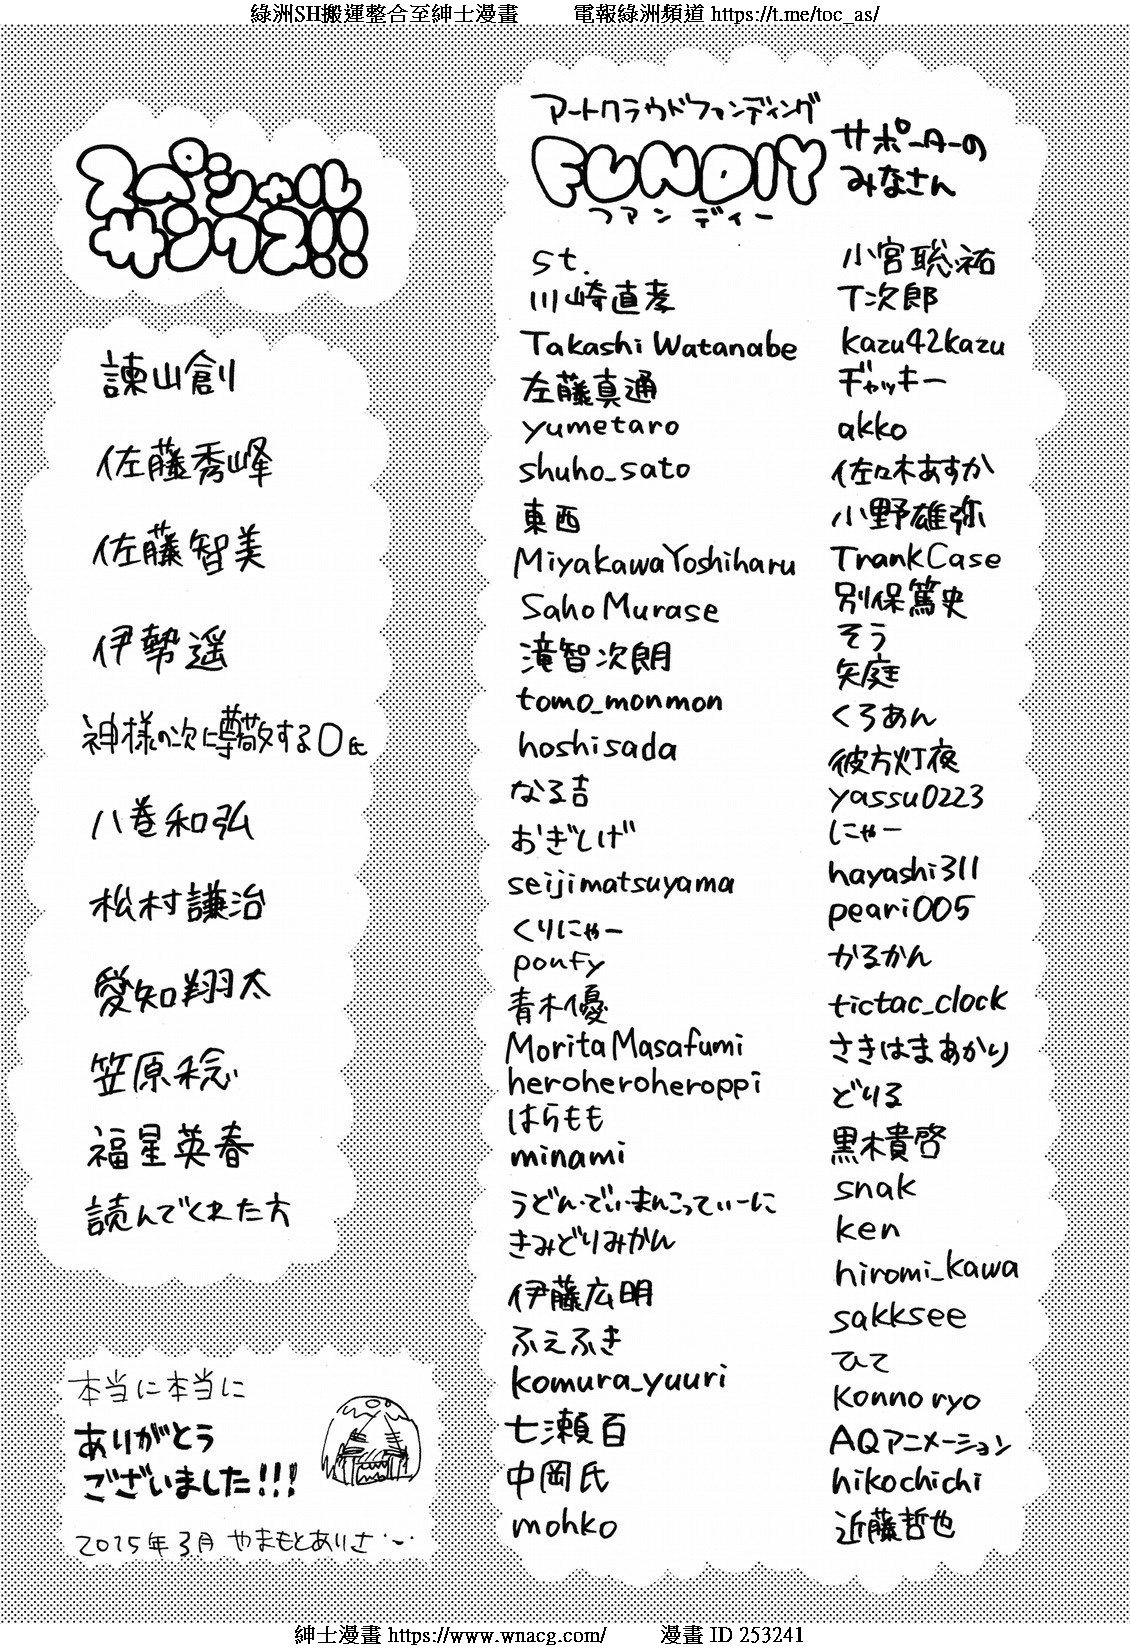 綠洲SH搬運整合至紳士漫畫 電報綠洲頻道 https://t.me/toc_as/
スペシャル
サンクス!!
諫山創
佐藤秀峰
佐藤智美
伊勢遥
神様の次に尊敬するO氏
八巻和弘
松村謙治
愛知翔太
笠原稔
福星英春
読んでくれた方
本当に本当に
ありがとう
ございました!!!
2015年3月 やまもとありさ
アートクラウドファンディング
FUNDIY
ファンディー
サポーターの
みなさん
st.
川崎直孝
Takashi Watanabe
左藤真通
yumetaro
shuho_sato
東西
MiyakawaYoshiharu
Saho Murase
滝智次朗
tomo_monmon
hoshisada
なる吉
おぎしげ
seijimatsuyama
くりにゃー
ponfy
青木優
Morita Masafumi
heroheroheroppi
はらもも
minami
うどん・でぃ・まんこってぃーに
きみどりみかん
伊藤広明
ふえふき
komura_yuuri
七瀬百
中岡氏
mohko
小宮聡祐
T次郎
kazu42kazu
ギャッキー
akko
佐々木あすか
小野雄弥
TnankCase
別保篤史
そう
矢庭
くろあん
彼方灯夜
yassu0223
にゃー
hayashi311
peari005
かるかん
tictac_clock
さきはまあかり
どりる
黒木貴啓
snak
ken
hiromi_kawa
sakksee
ひて
Konno ryo
AQアニメーション
hikochichi
近藤哲也
紳士漫畫 https://www.wnacg.com/ 漫畫 ID 253241